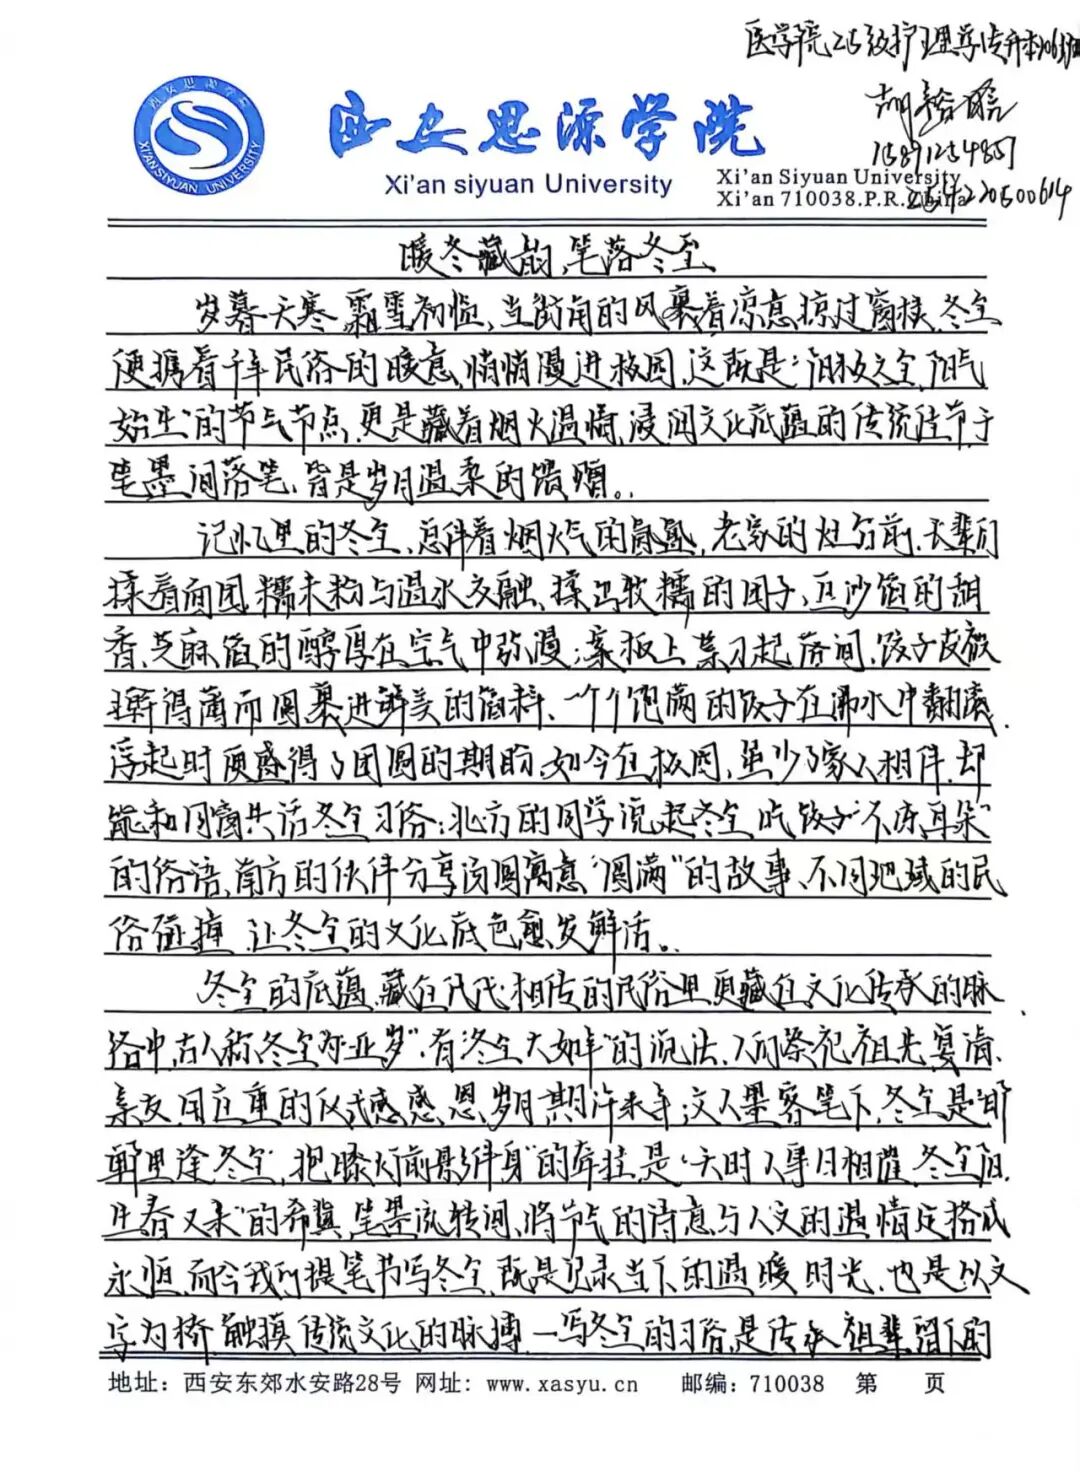 医学院25级护理学专升本2063班
胡
西安思源学院
Xi'an siyuan University
Xi'an Siyuan University
Xi'an 710038.P.R.China
XI'AN SIYUAN UNIVERSITY
暖冬藏韵,笔落冬至
岁暮天寒,霜雪初临,当街角的风裹着凉意掠过窗棂,冬至
便携着千年民俗的暖意,悄悄漫进校园,这既是“阳极之至,阳气
始生”的节气节点,更是藏着烟火温情,浸润文化底蕴的传统佳节,于
笔墨间落笔,皆是岁月温柔的馈赠。
记忆里的冬至,总伴着烟火气的氤氲,老家的灶台前,长辈们
揉着面团,糯米粉与温水交融,揉出软糯的团子,豆沙馅的甜
香,芝麻馅的醇厚在空气中弥漫;案板上菜刀起落间,饺子皮被
擀得薄而圆,裹进鲜美的馅料,一个个饱满的饺子在沸水中翻腾,
浮起时便盛得了团圆的期盼,如今在校园,虽少了家人相伴,却
能和同窗共话冬至习俗:北方的同学说起冬至吃饺子“不冻耳朵”
的俗语,南方的伙伴分享汤圆寓意“圆满”的故事,不同地域的民
俗碰撞,让冬至的文化底色愈发鲜活。
冬至的底蕴,藏在代代相传的民俗里,更藏在文化传承的脉
络中,古人称冬至为“亚岁”,有“冬至大如年”的说法,人们祭祀祖先,宴请
亲友,用庄重的仪式感感恩岁月,期许来年;文人墨客笔下,冬至是“邯
郸里逢冬至,抱膝灯前影伴身”的牵挂,是“天时人事日相催,冬至阳
生春又来”的希冀,笔墨流转间,将节气的诗意与人文的温情定格成
永恒,而今我们提笔书写冬至,既是记录当下的温暖时光,也是以文
字为桥,触摸传统文化的脉搏—写冬至的习俗,是传承祖辈留下的
地址: 西安东郊水安路28号 网址: www.xasyu.cn 邮编: 710038 第 页